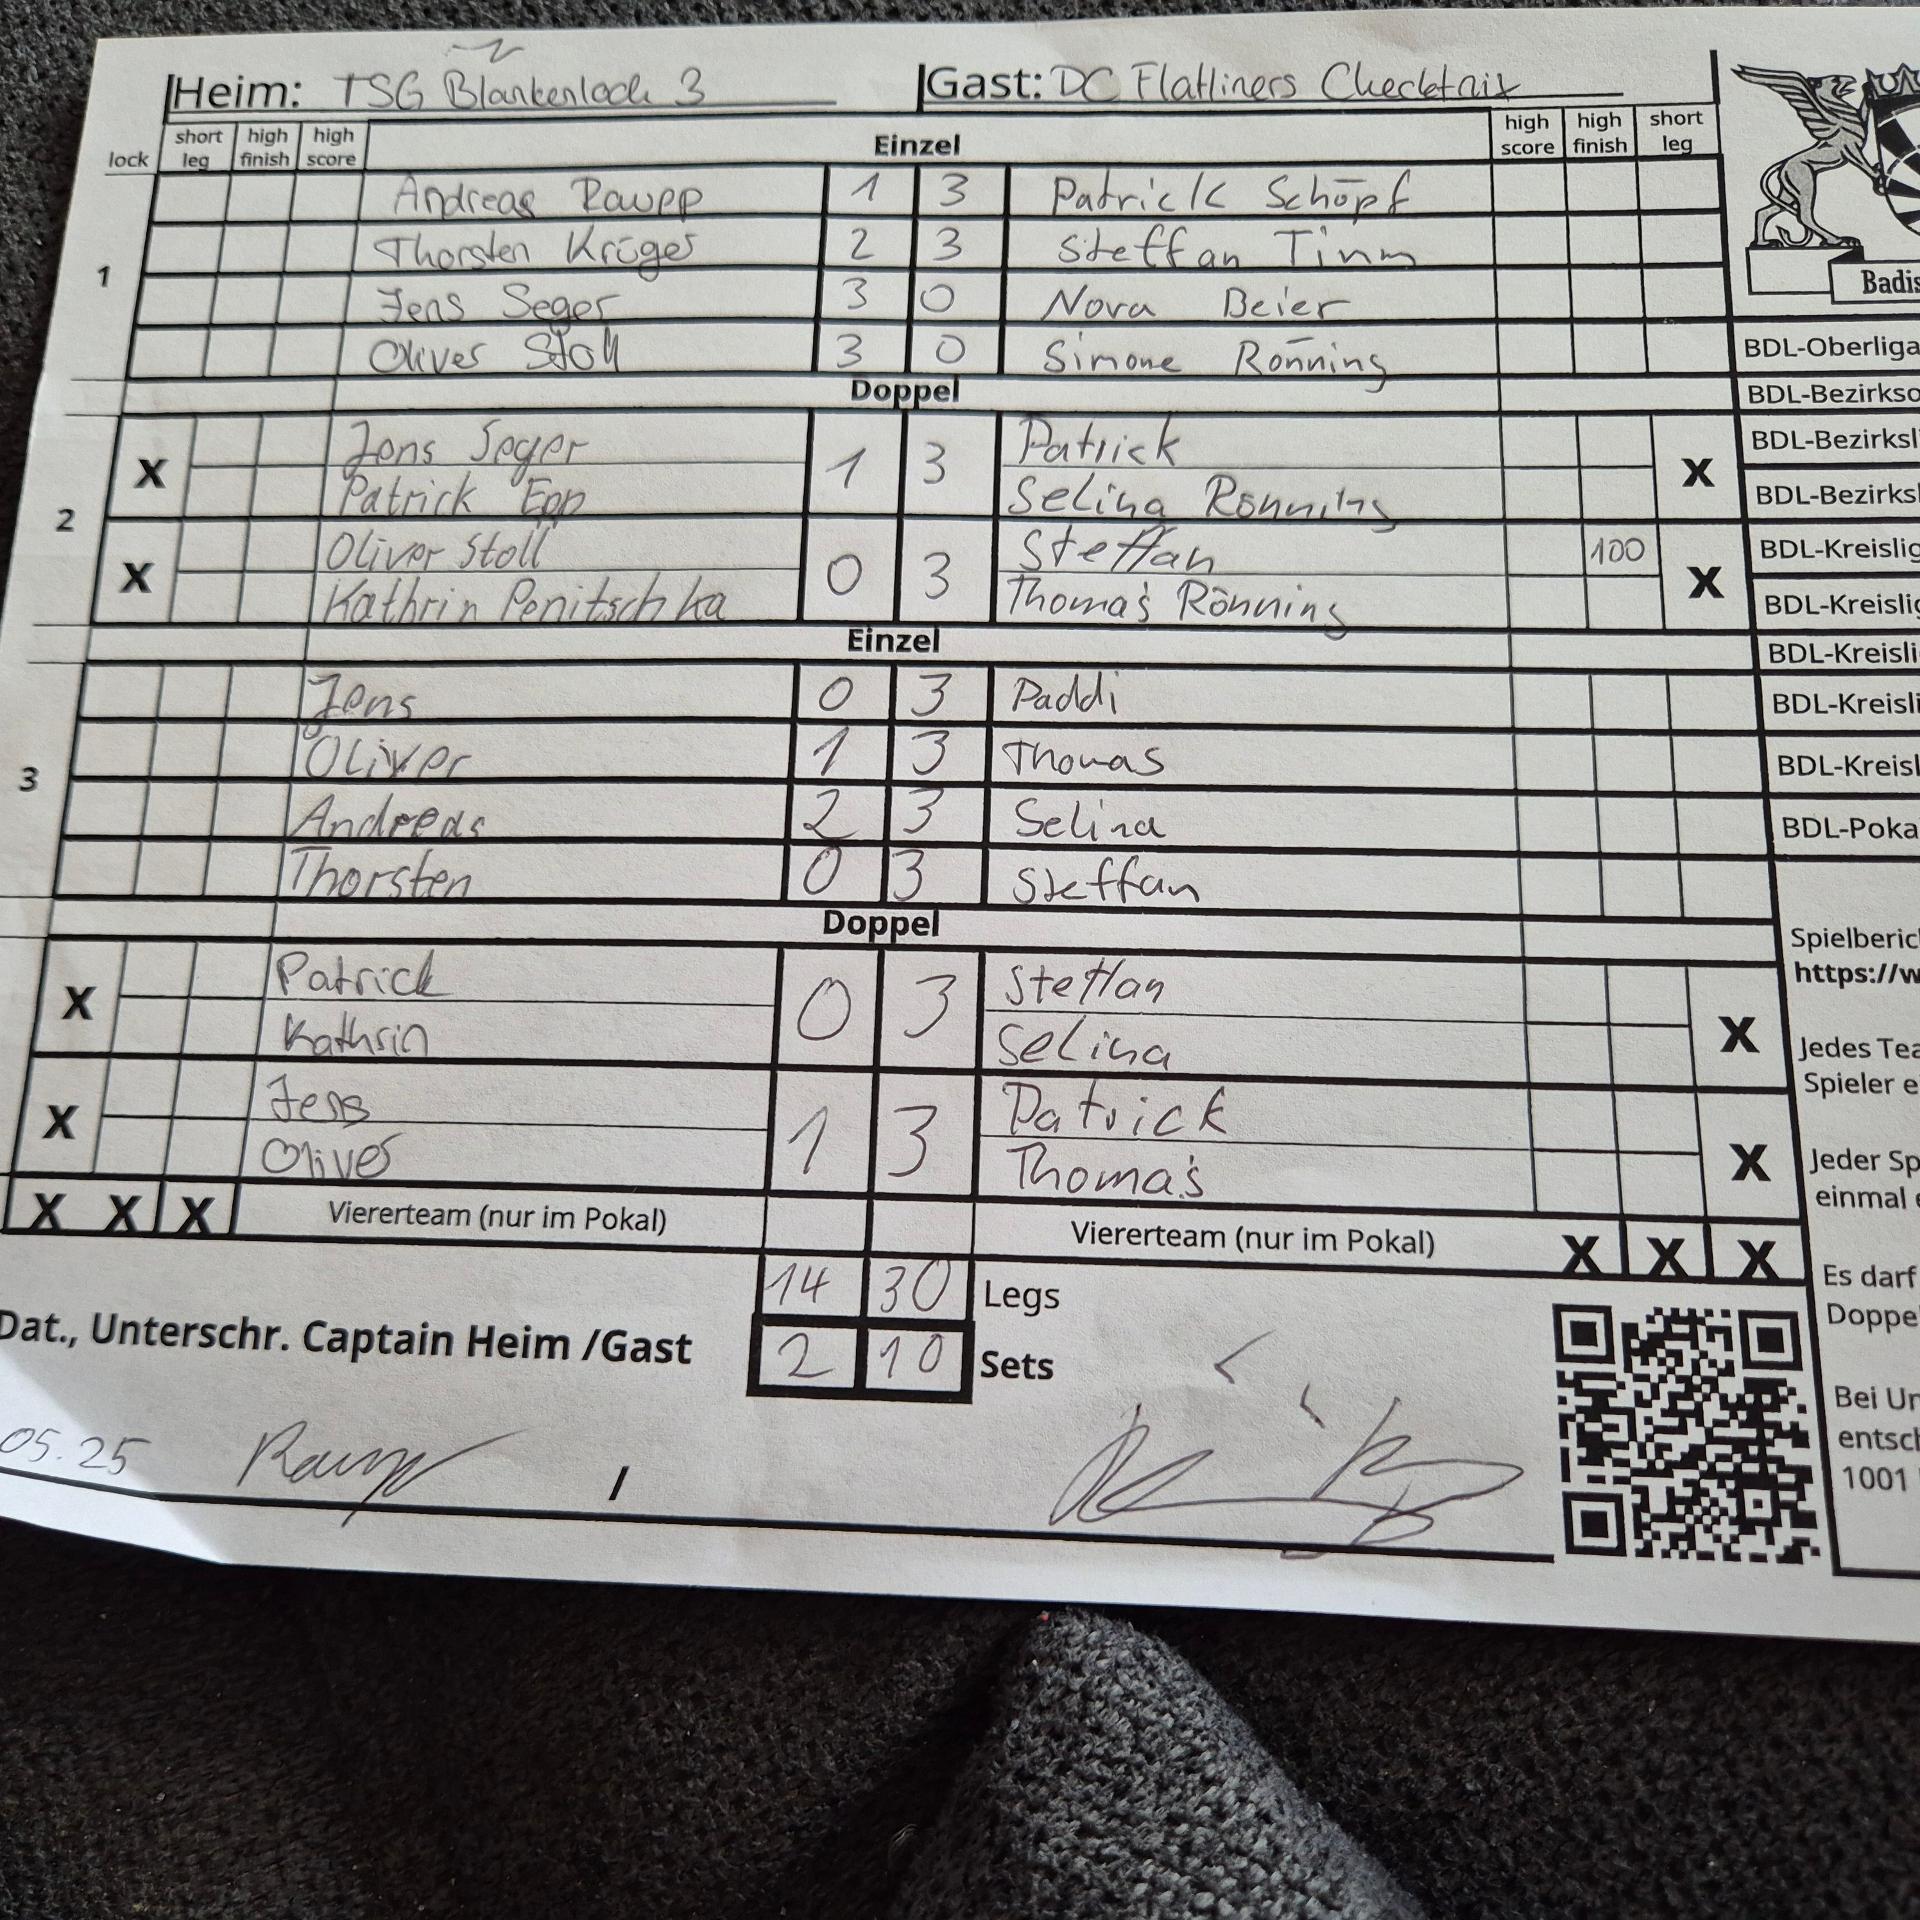 Heim: TSG Blankenloch 3 Gast: DC Flatliners Checktnix
lock short leg high finish high score Einzel high score high finish short leg
1
Andreas Raupp 1 3 Patrick Schöpf
Thorsten Krüger 2 3 Steffan Timm
Jens Seger 3 0 Nova Beier
Oliver Stoll 3 0 Simone Rönning
Doppel
2
X Jens Seger 1 3 Patrick X
Patrick Epp Selina Rönning
X Oliver Stoll 0 3 Steffan 100 X
Kathrin Penitschka Thomas Rönning
Einzel
3
Jens 0 3 Paddi
Oliver 1 3 Thomas
Andreas 2 3 Selina
Thorsten 0 3 Steffan
Doppel
X Patrick 0 3 Steffan X
Kathrin Selina
X Jens 1 3 Patrick X
Oliver Thomas
X X X Viererteam (nur im Pokal) Viererteam (nur im Pokal) X X X
14 30 Legs
Dat., Unterschr. Captain Heim /Gast 2 10 Sets
05.25 Raupp /
Badis
BDL-Oberliga
BDL-Bezirkso
BDL-Bezirksl
BDL-Bezirksl
BDL-Kreislig
BDL-Kreislig
BDL-Kreisli
BDL-Kreisli
BDL-Kreisl
BDL-Poka
Spielberic
https://w
Jedes Tea
Spieler e
Jeder Sp
einmal
Es darf
Doppe
Bei Un
entsch
1001